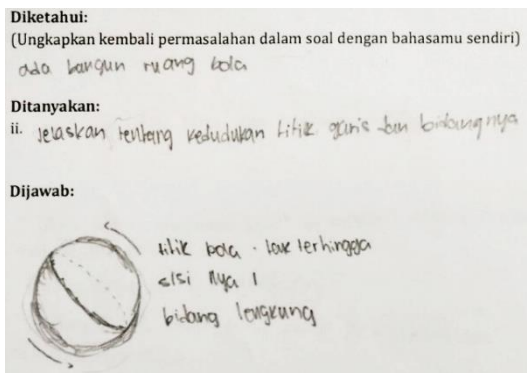 Diketahui:
(Ungkapkan kembali permasalahan dalam soal dengan bahasamu sendiri)
ada bangun ruang bola
Ditanyakan:
ii. Jelaskan tentang kedudukan titik garis dan bidangnya
Dijawab:
titik bola . tak terhingga
sisi nya 1
bidang lengkung